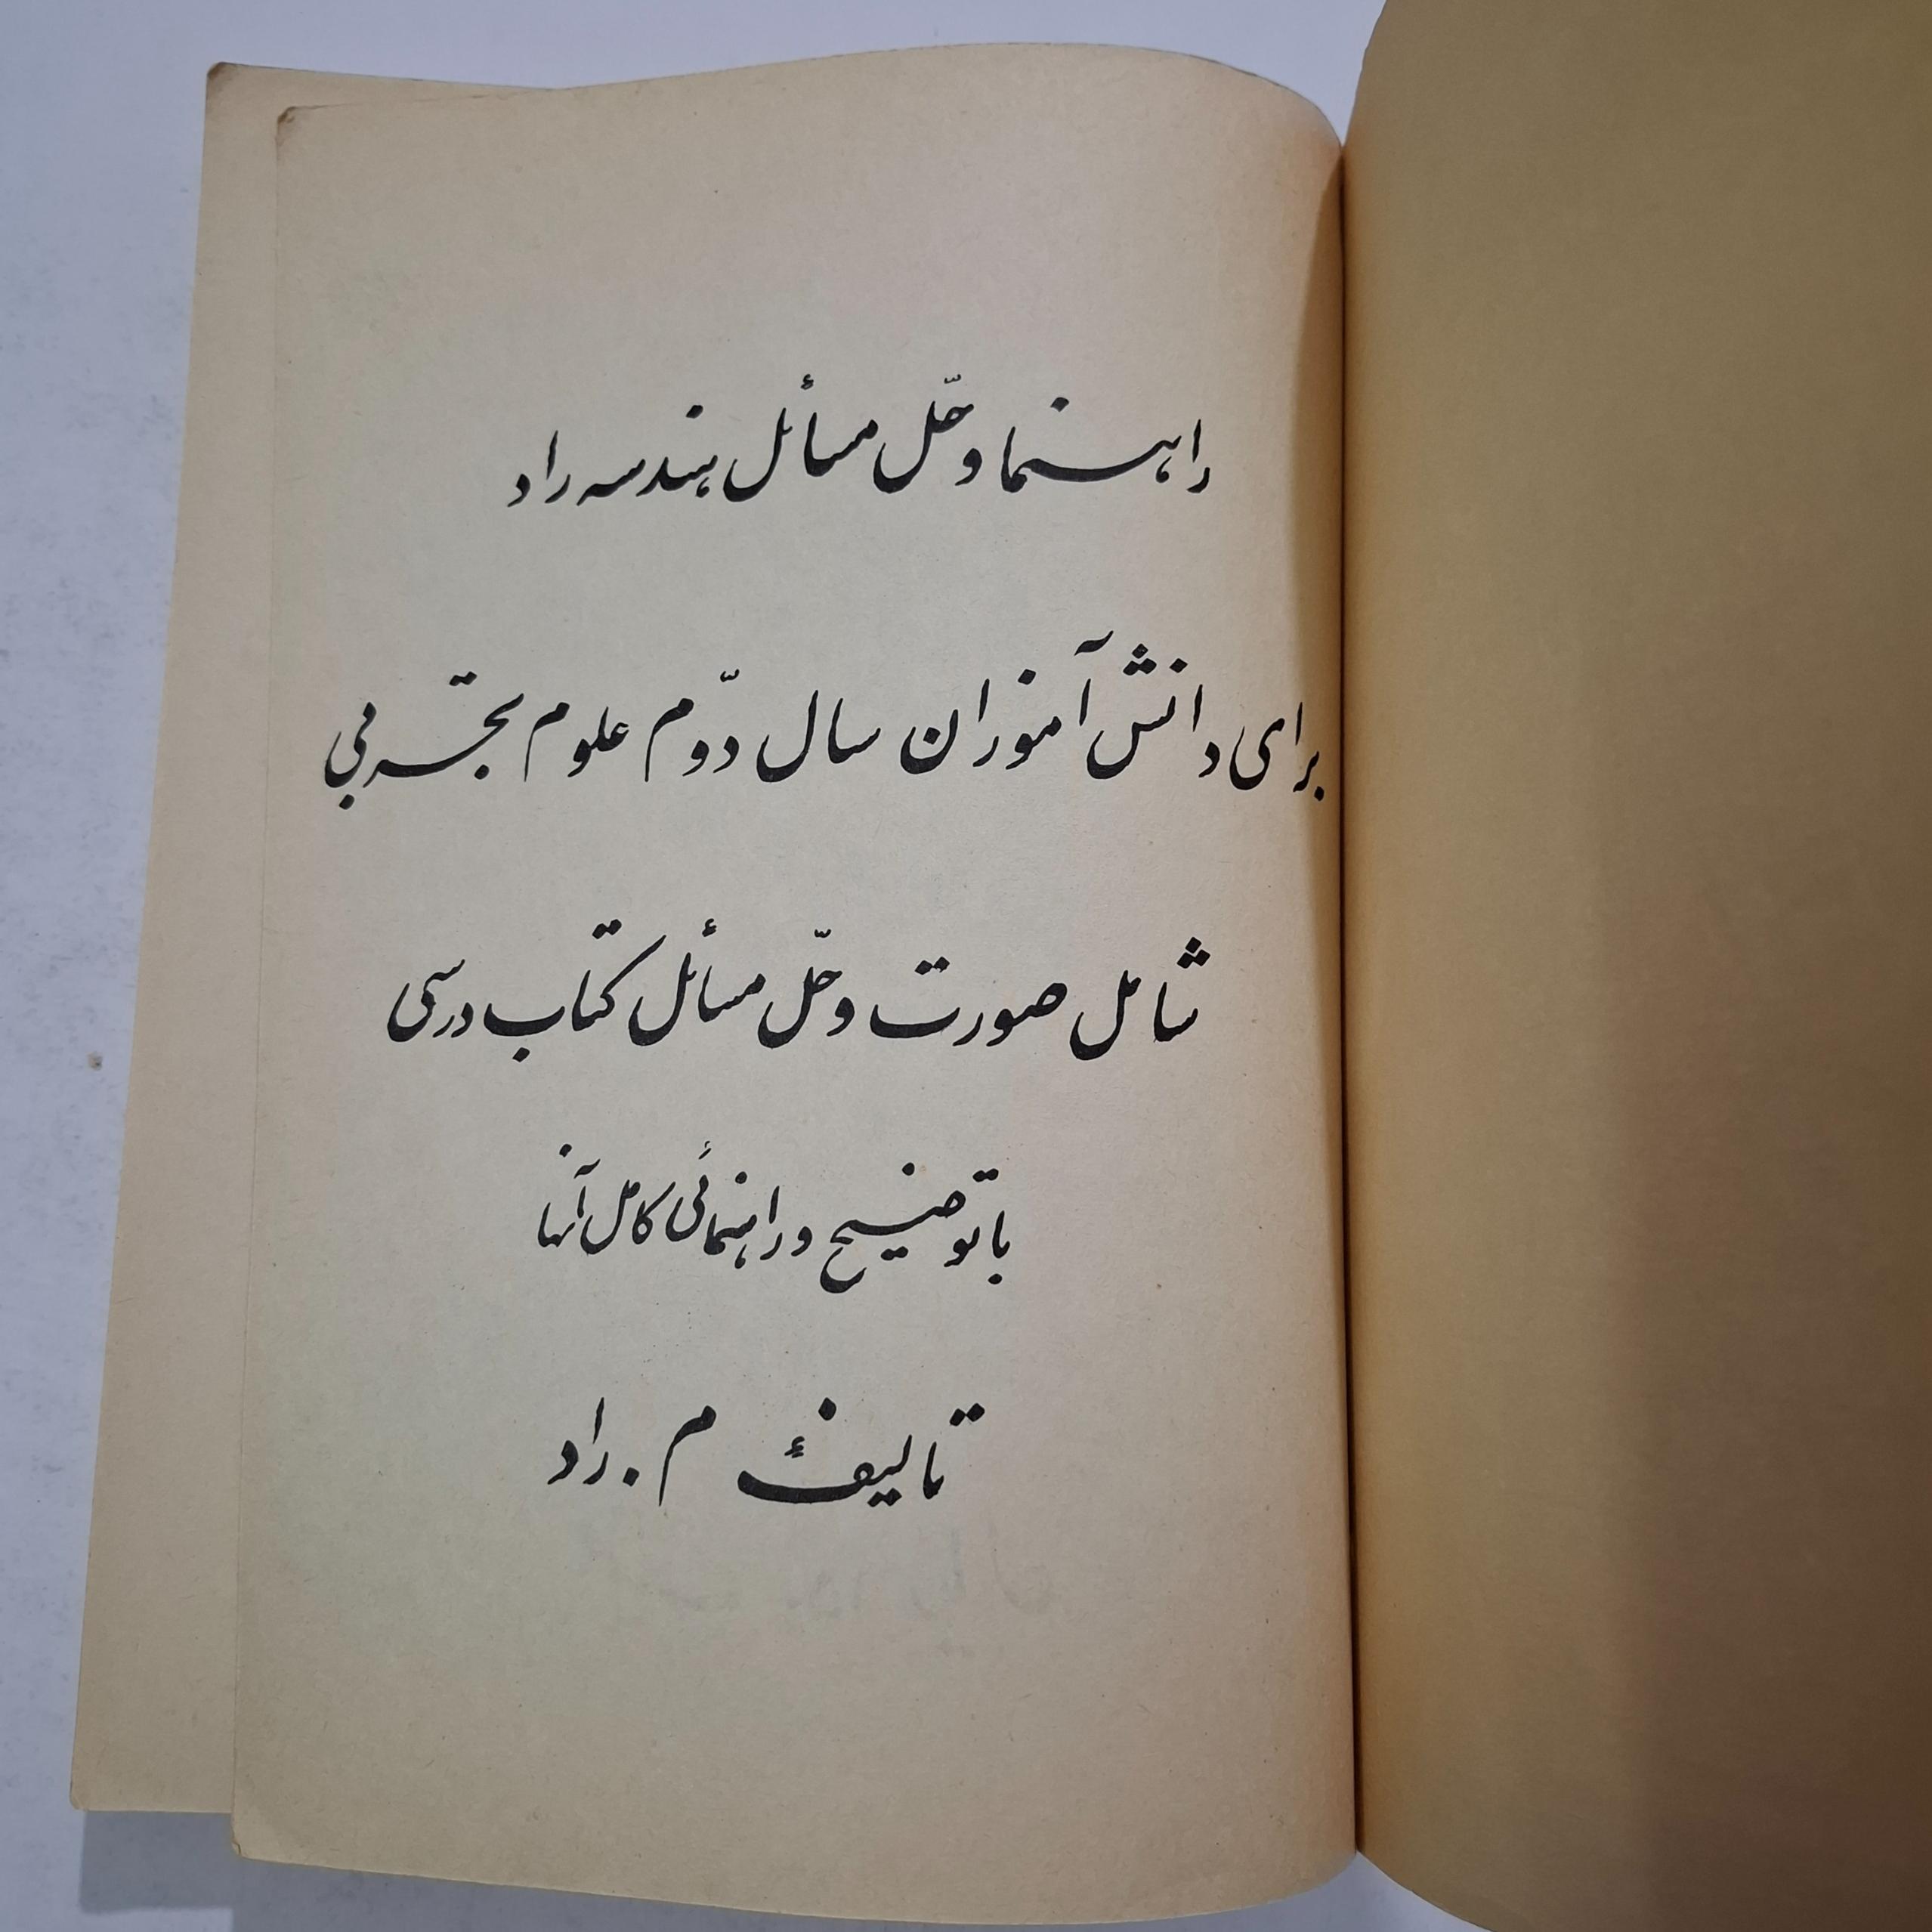 راهنما و حّل مسأئل هندسه راد
برای دانش آموزان سال دوّم علوم تجربی
شامل صورت و حّل مسأئل کتاب درسی
با توضیح و راهنمائی کامل آنها
تالیف م . راد